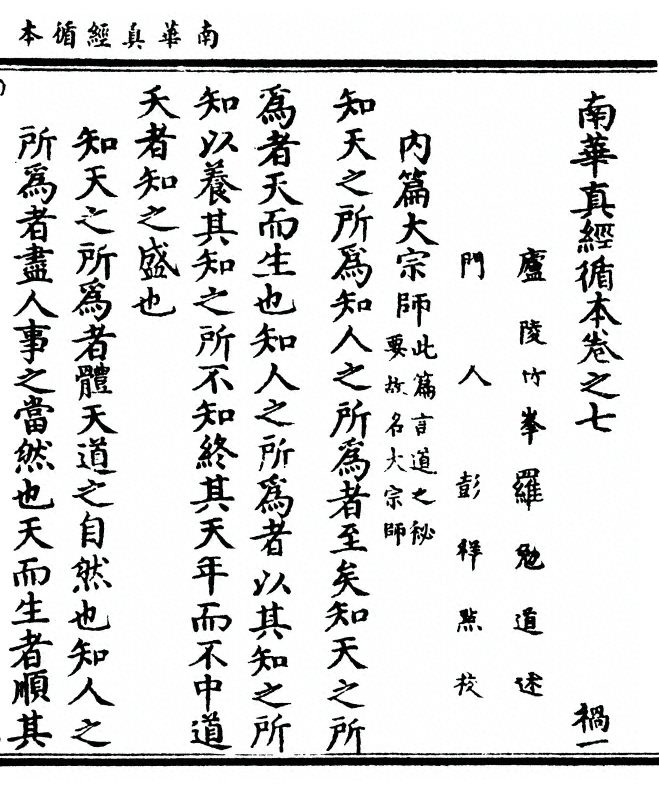 南華真經循本
南華真經循本卷之七 禍一
廬陵竹峯羅勉道述
門人彭祥點校
内篇大宗師此篇言道之祕
要故名大宗師
知天之所爲知人之所爲者至矣知天之所
爲者天而生也知人之所爲者以其知之所
知以養其知之所不知終其天年而不中道
夭者知之盛也
知天之所爲者體天道之自然也知人之
所爲者盡人事之當然也天而生者順其